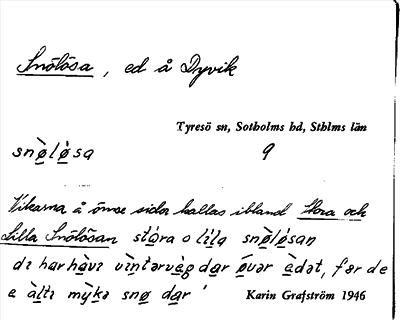 Snölösa, ed å Dyvik
Tyresö sn, Sotholms hd, Sthlms län
snø̀lø̀sa 9
Vikarna å ömse sidor kallas ibland Stora och
Lilla Snölösan stóra o líla snø̀lø̀san
dɩ har hàvɩ vɩ̀ntərvàg dar ø̀vər àdət, før de
e àltɩ mỳkə snø dar'
Karin Grafström 1946